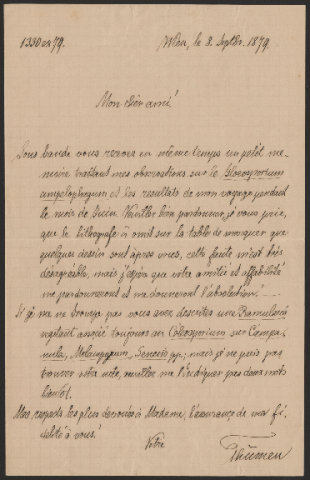 1330 ex 79.
Wien, le 3. Septbr. 1879.
Mon cher ami!
Sous bande vous recevez en même temps un petit mé-
moire traitant mes observations sur le Gloeosporium
ampelophagum et les resultats de mon voyage pendant
le mois de Juin. Veuillez bien pardonner, je vous prie,
que le lithografe a omit sur la table de marquer que
quelques dessin sont après vous, cette faute m'est très
désagréable, mais j'espère que votre amitié et affabilité
me pardonneront et me donneront l'absolution! —
Si je ne me trompe pas vous avez descrites une Ramularia
végétant toujours sur Coleosporium sur Campa-
nula, Melampyrum, Senecio pp.; mais je ne puis pas
trouver cette note, veuillez me l'indiquer par deux mots
bientôt.
Mes regards les plus devoués à Madame, l'assurance de ma fi-
delité à vous!
Votre
Thümen